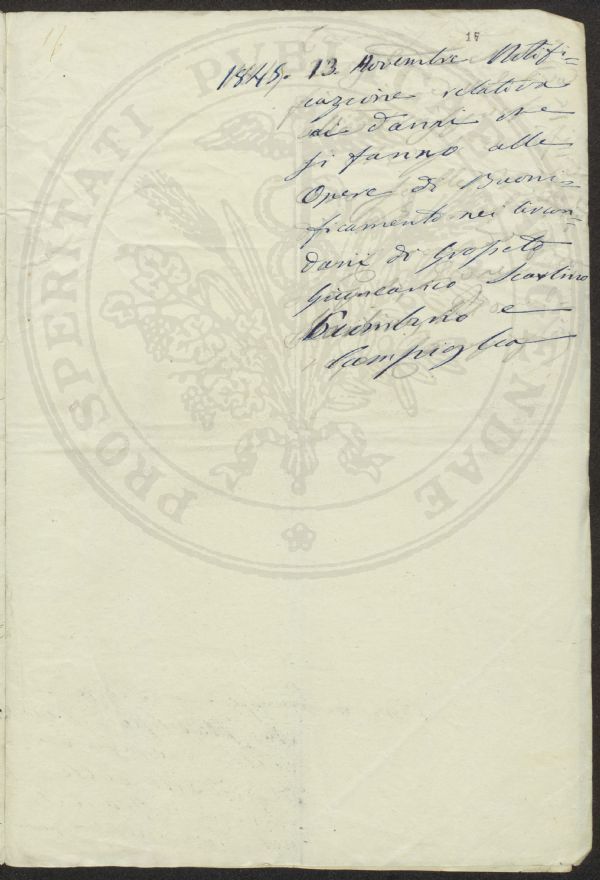 17
1845. 13. Novembre Notifi-
cazione relativa
ai danni che
si fanno alle
Opere di Buoni-
ficamento nei circon-
dari di Grosseto
Giuncarico Scarlino
Piombino e
Campiglia
PROSPERITATI PVBLICAE AVGENDAE